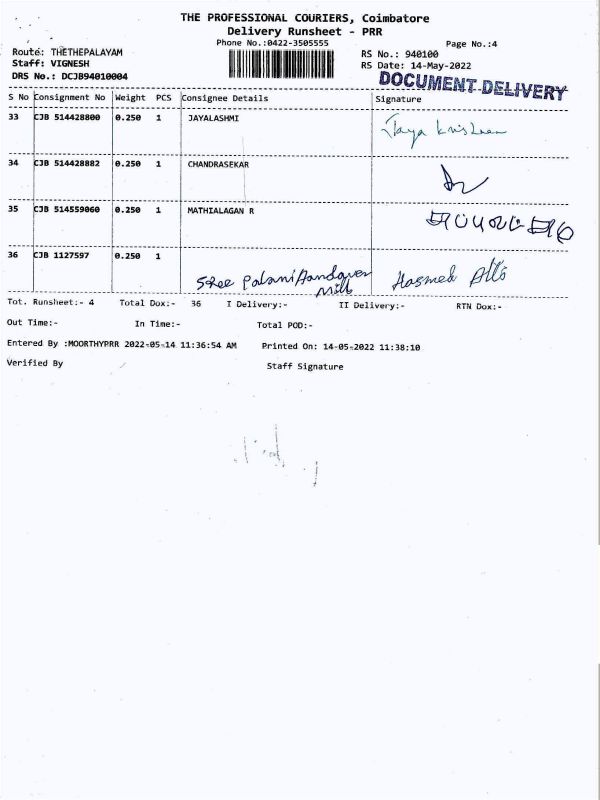 THE PROFESSIONAL COURIERS, Coimbatore
Delivery Runsheet - PRR
Phone No.:0422-3505555
Page No.:4
Route: THETHEPALAYAM
RS No.: 940100
Staff: VIGNESH
RS Date: 14-May-2022
DRS No.: DCJB94010004
DOCUMENT DELIVERY
S No Consignment No Weight PCS Consignee Details Signature
33 CJB 514428800 0.250 1 JAYALASHMI Jaya krishnan
34 CJB 514428882 0.250 1 CHANDRASEKAR
35 CJB 514559060 0.250 1 MATHIALAGAN R
36 CJB 1127597 0.250 1
Sree Palani Aandaver
Mill
Tot. Runsheet:- 4 Total Dox:- 36 I Delivery:- II Delivery:- RTN Dox:-
Out Time:- In Time:- Total POD:-
Entered By :MOORTHYPRR 2022-05-14 11:36:54 AM Printed On: 14-05-2022 11:38:10
Verified By Staff Signature